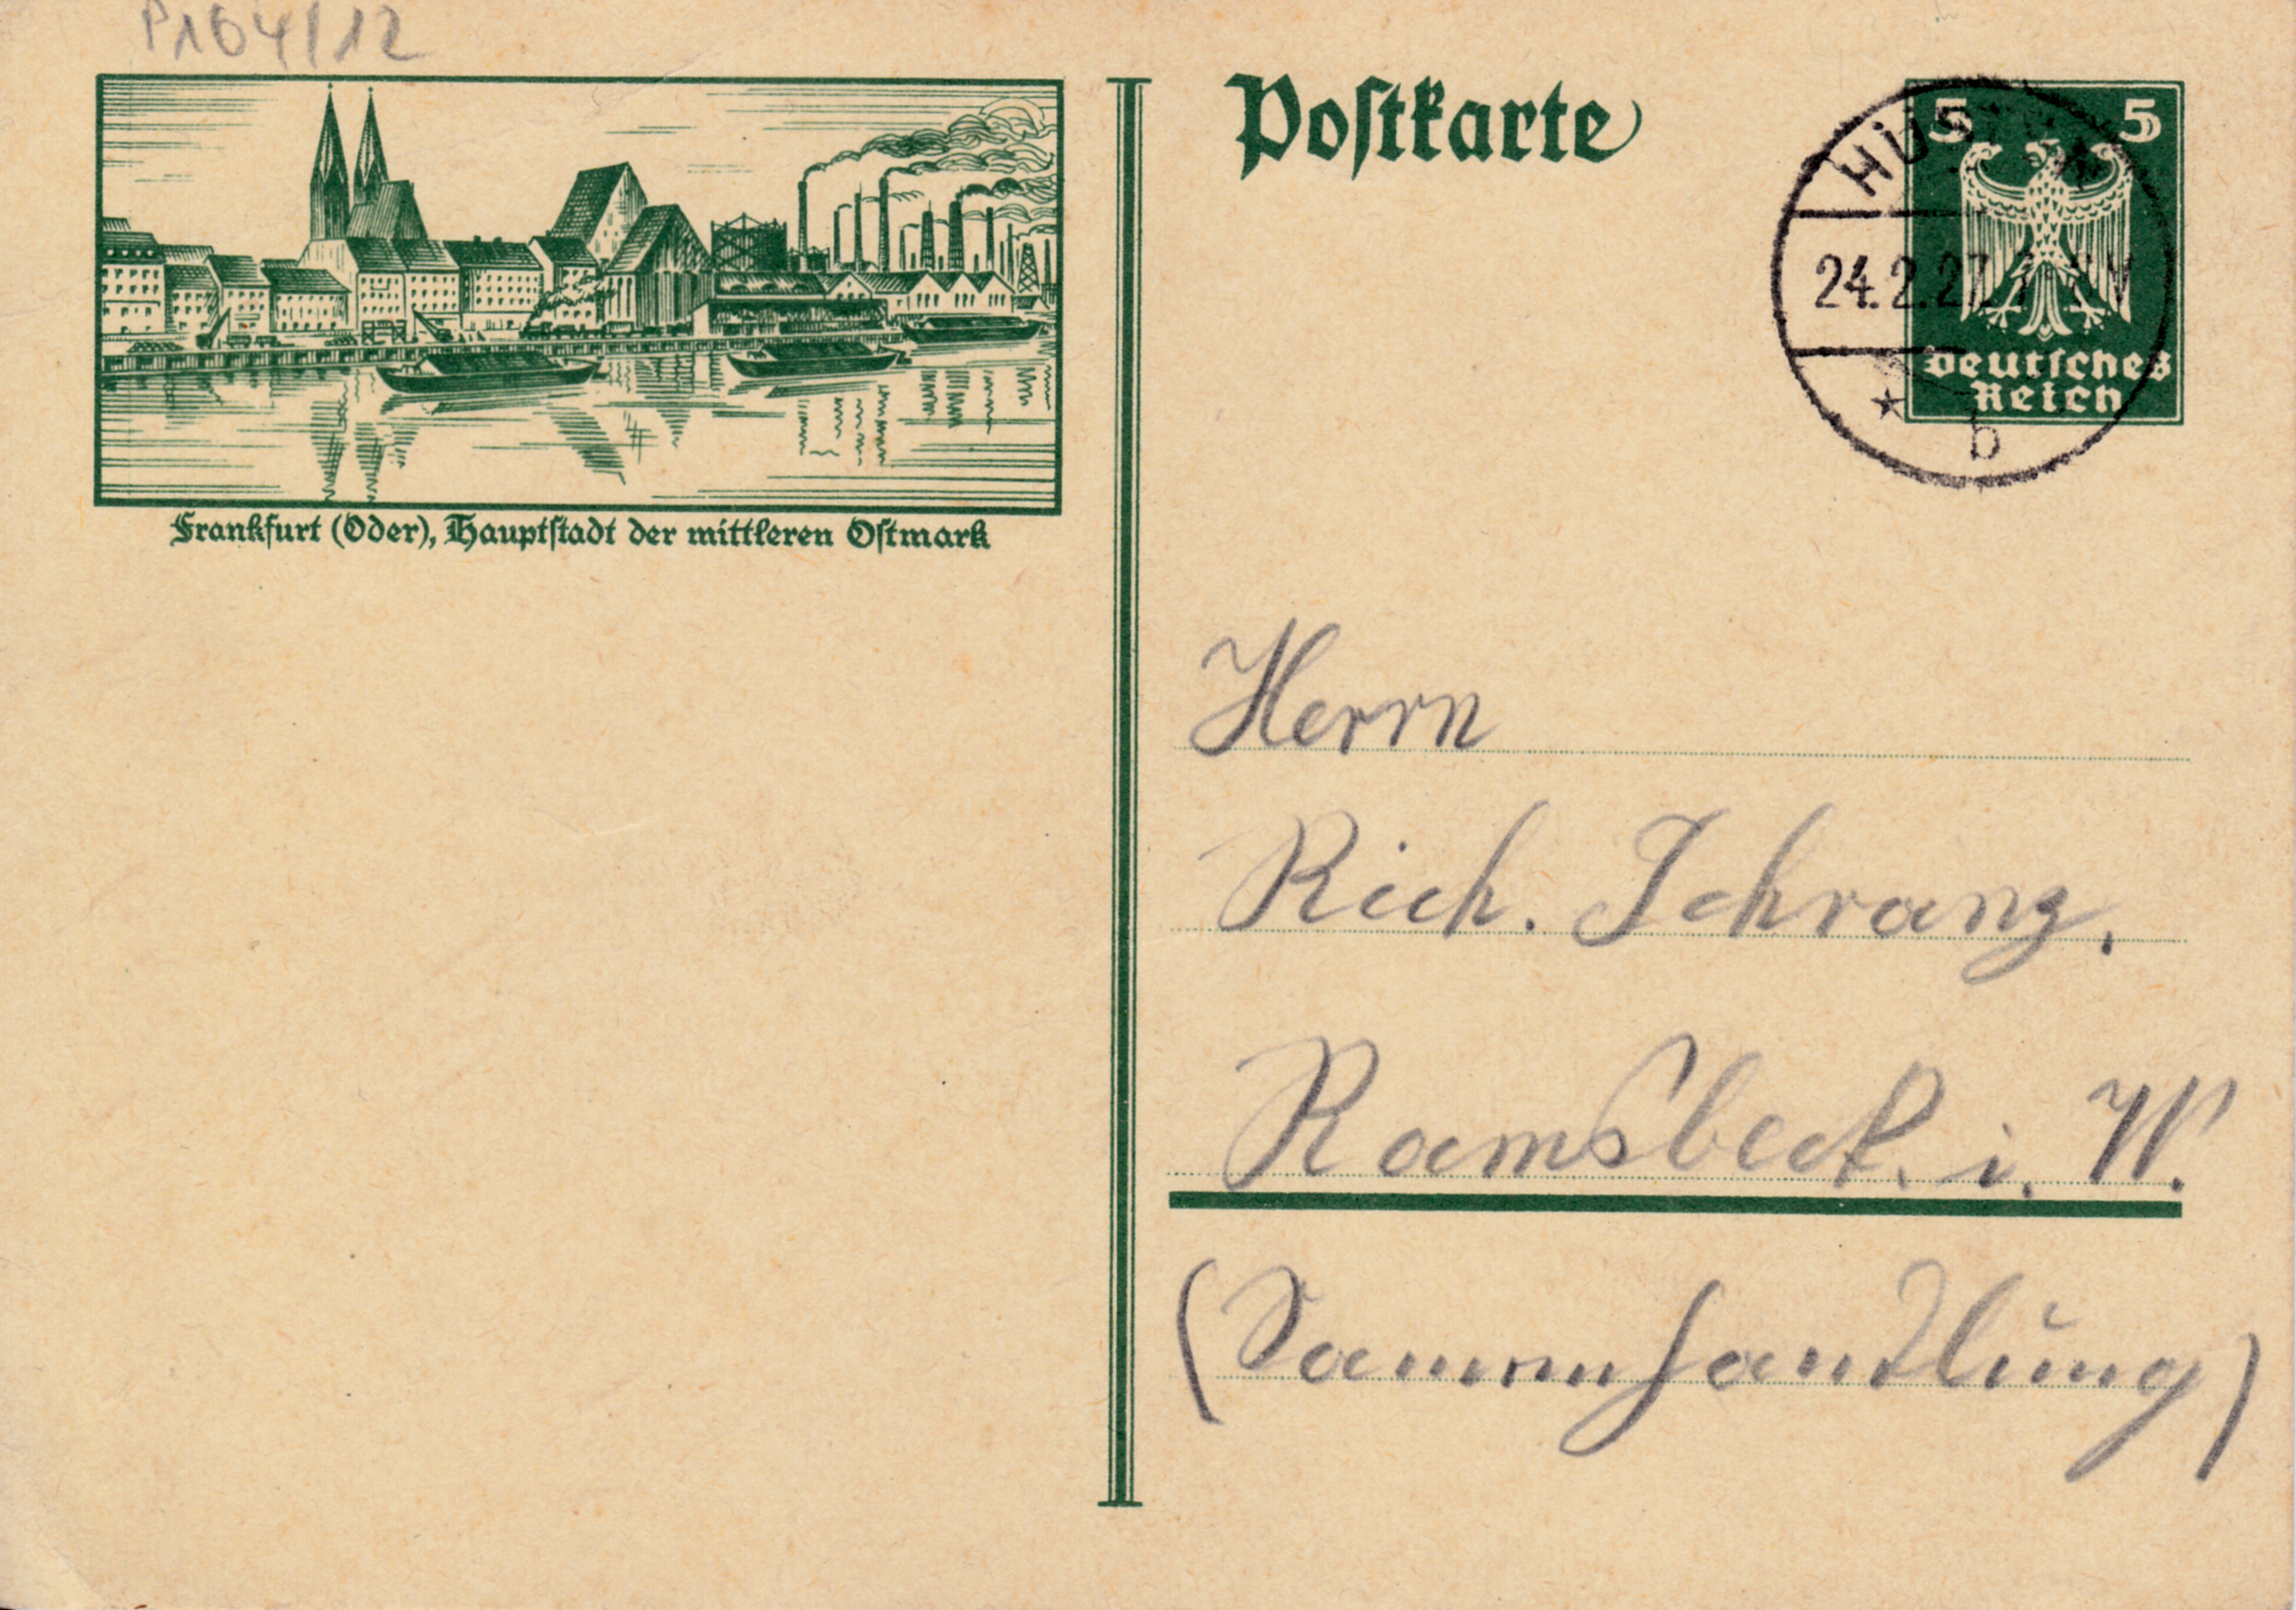 P164/12
Postkarte
5 5
HÜSTEN
24.2.27.
* b
Deutsches
Reich
Frankfurt (Oder), Hauptstadt der mittleren Ostmark
Herrn
Rich. Schrang,
Ramsbeck. i. W.
(Samenhandlung)